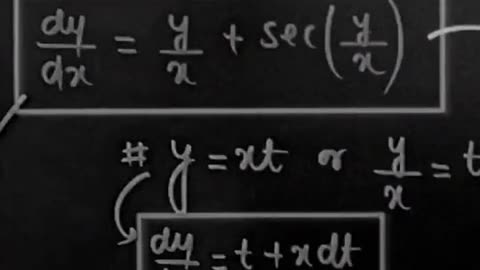 dy/dx = y/x + sec(y/x)
# y = xt or y/x = t
dy = t + x dt